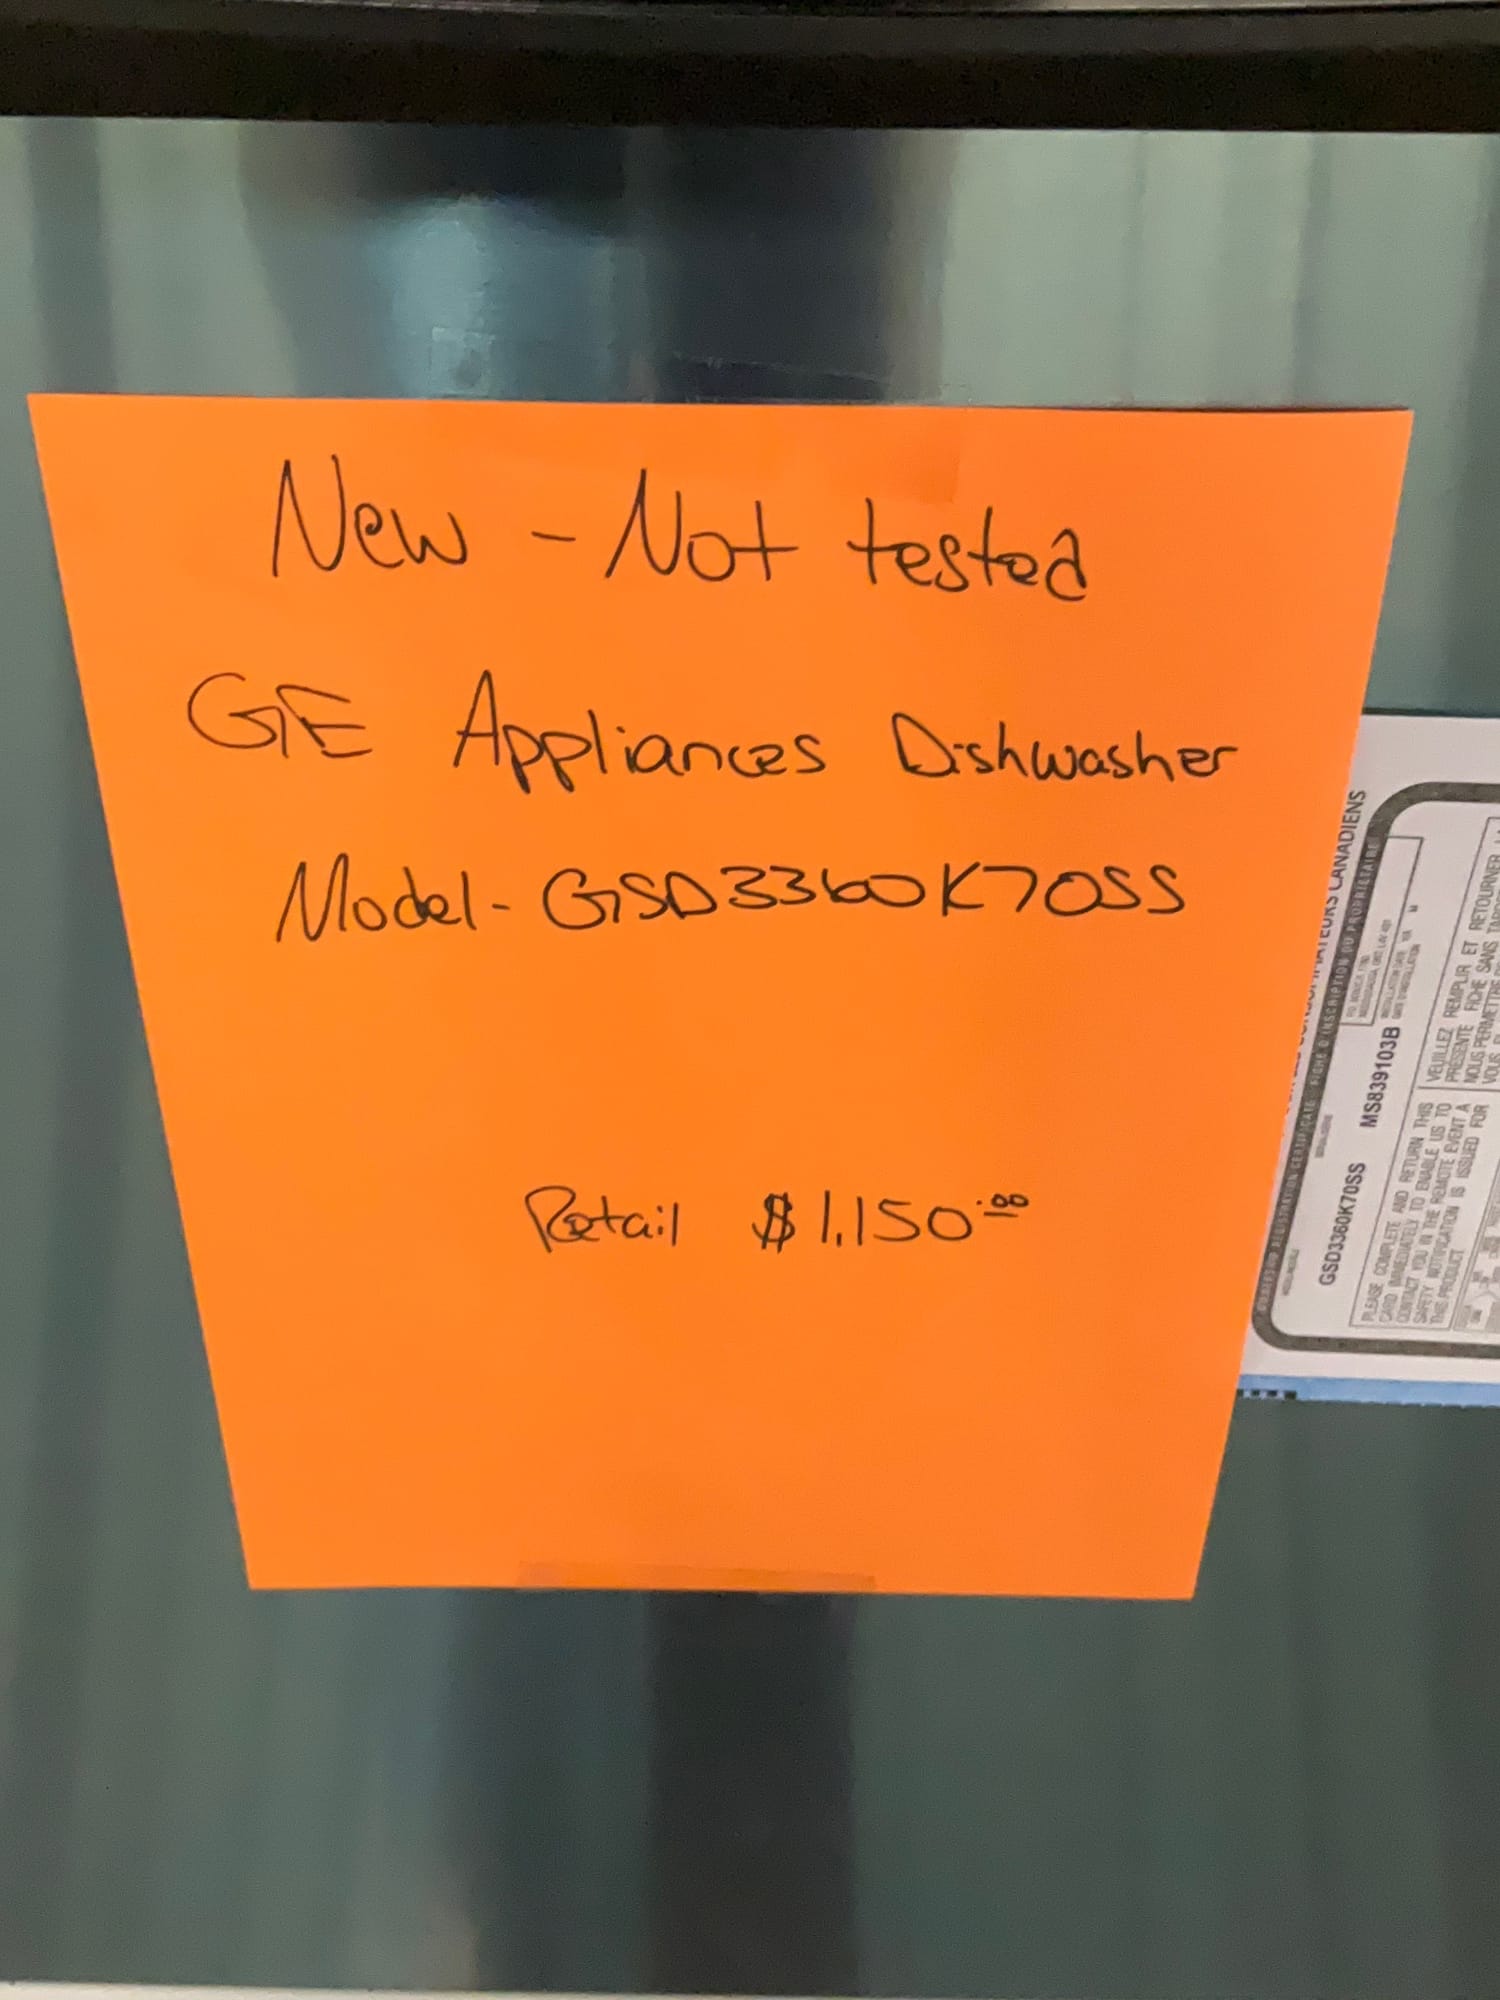 New - Not tested
GE Appliances Dishwasher
Model- GSD3360K70SS
Retail $1,150.00
CANADIENS
GSD3360K70SS MS839103B
PLEASE COMPLETE AND RETURN THIS
CARD IMMEDIATELY TO ENABLE US TO
CONTACT YOU IN THE REMOTE EVENT A
SAFETY NOTIFICATION IS ISSUED FOR
THIS PRODUCT
VEUILLEZ REMPLIR ET RETOURNER
PRÉSENTE FICHE SANS
NOUS PERMETTRE
VOUS